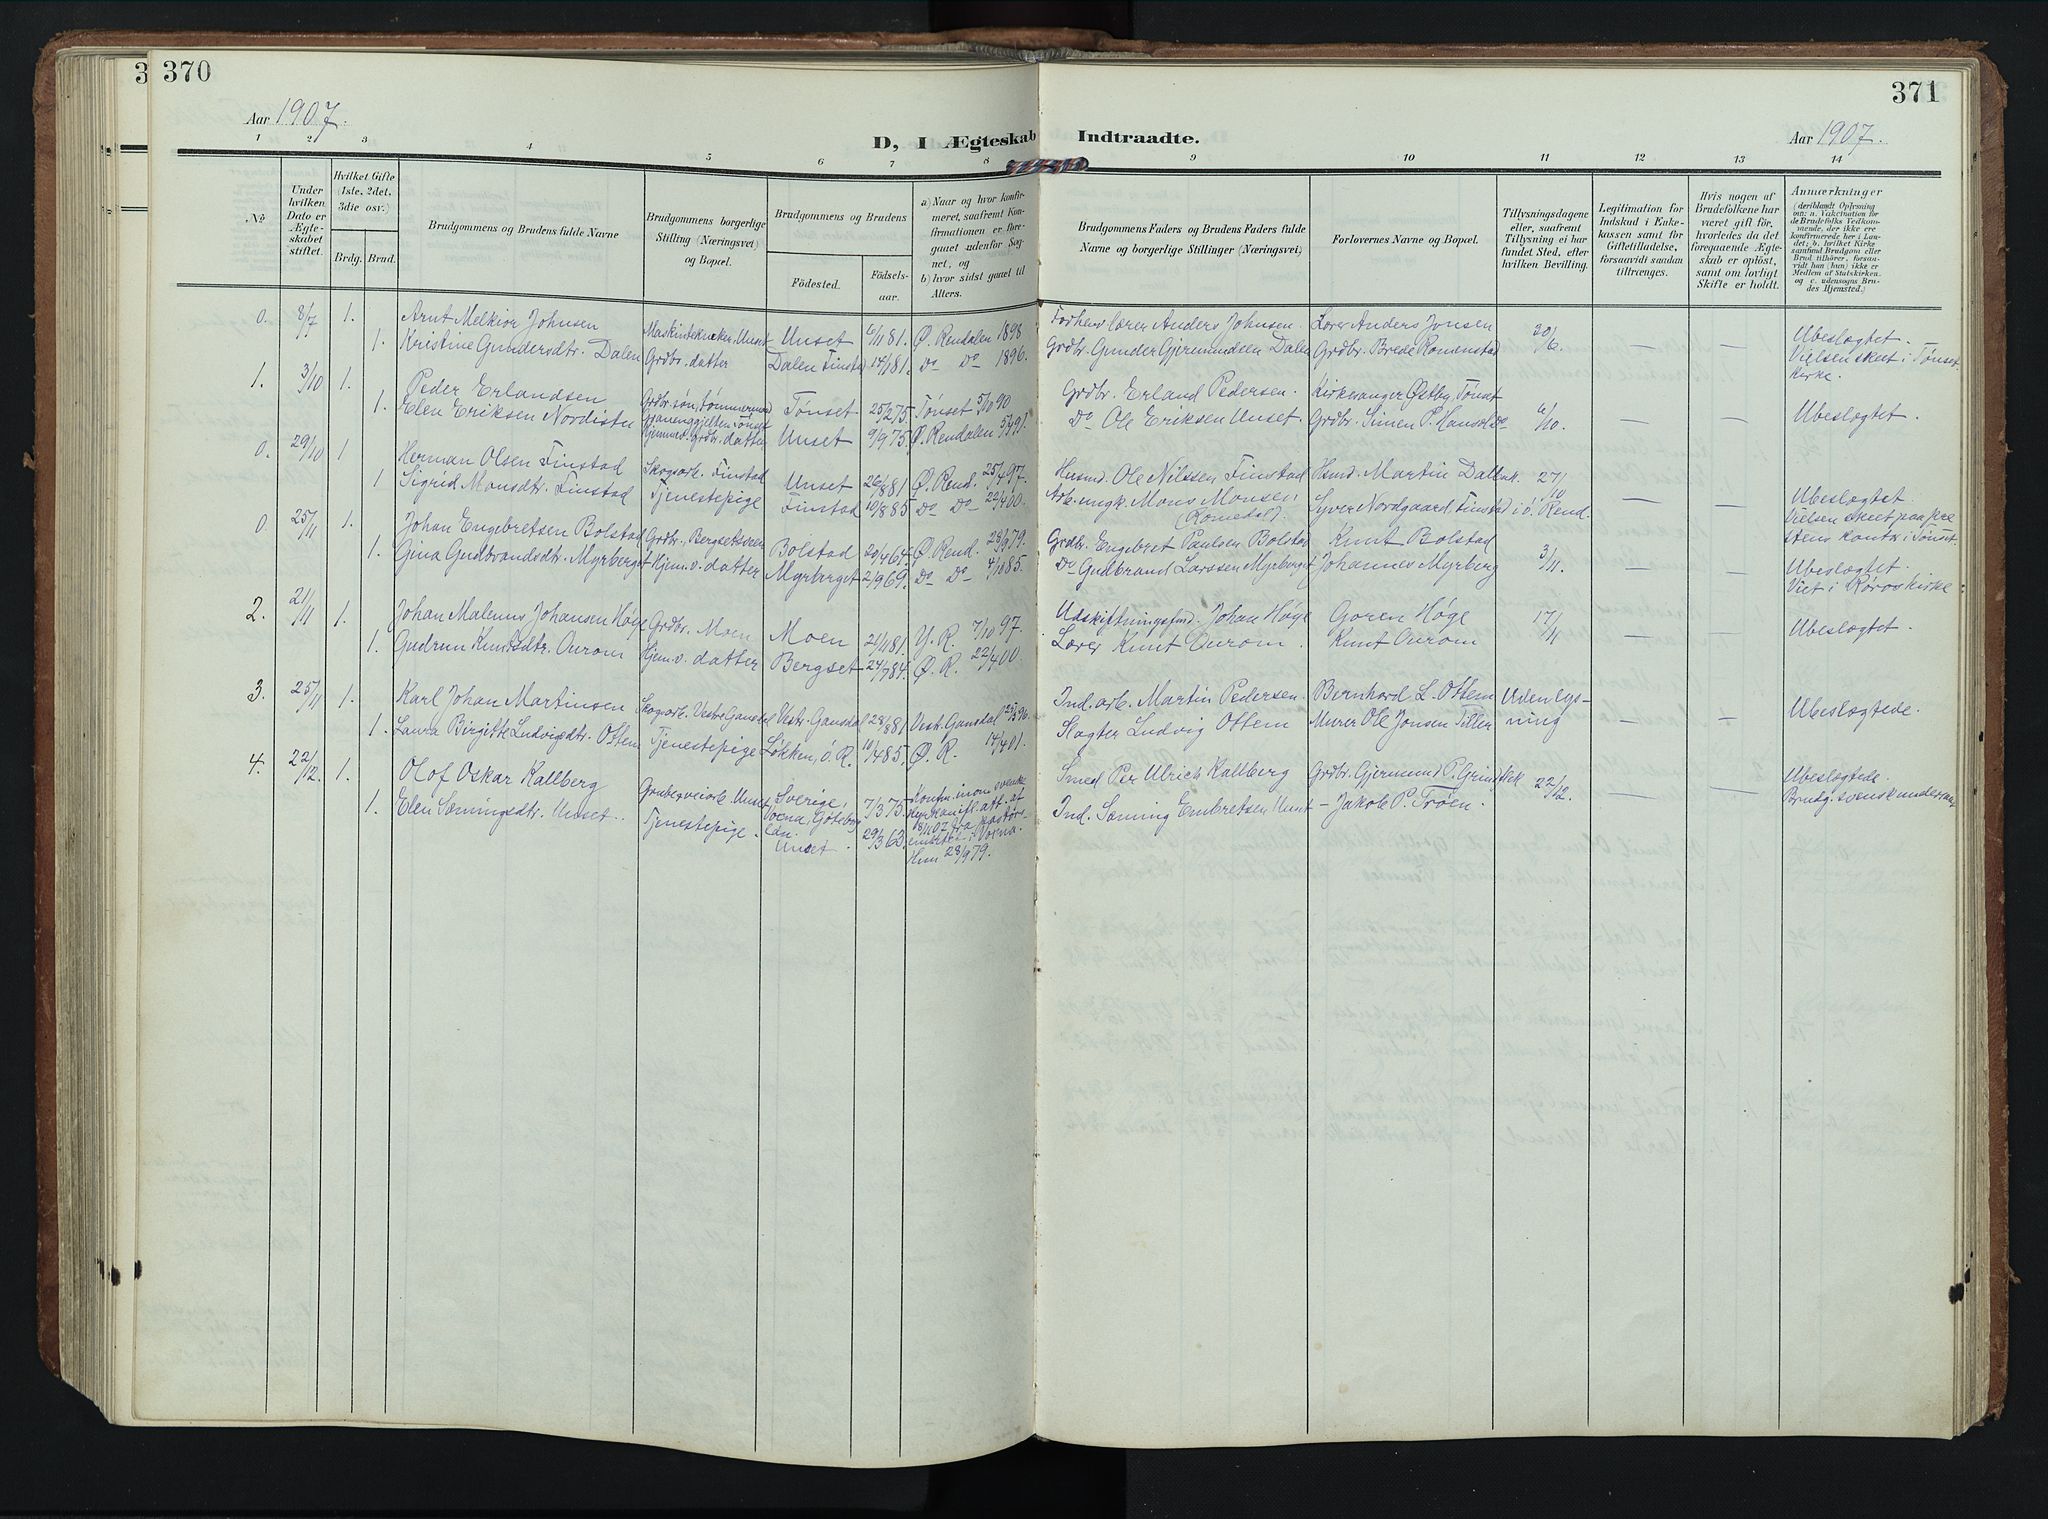 3
370
371
Aar 1907.
Aar 1907.
D, I Ægteskab Indtraadte.
1 2 3 4 5 6 7 8 9 10 11 12 13 14
No
Under hvilken Dato er Ægteskabet stiftet.
Hvilket Gifte (1ste, 2det, 3die osv.)
Brdg. Brud.
Brudgommens og Brudens fulde Navne
Brudgommens borgerlige Stilling (Næringsvei) og Bopæl.
Brudgommens og Brudens
Fødested. Fødselsaar.
a) Naar og hvor konfirmeret, saafremt Konfirmationen er foregaaet udenfor Sognet, og
b) hvor sidst gaaet til Alters.
Brudgommens Faders og Brudens Faders fulde Navne og borgerlige Stillinger (Næringsvei)
Forlovernes Navne og Bopæl.
Tillysningsdagene eller, saafremt Tillysning ei har fundet Sted, efter hvilken Bevilling.
Legitimation for Indskud i Enkekassen samt for Giftetilladelse, forsaavidt saadan tiltrænges.
Hvis nogen af Brudefolkene har været gift før, hvorledes da det foregaaende Ægteskab er opløst, samt om lovligt Skifte er holdt.
Anmærkninger (deriblandt Oplysning om: a. Vakcination for de Brudefolks Vedkommende, der ikke ere konfirmerede her i Landet; b. hvilket Kirkesamfund Brudgom eller Brud tilhører, forsaavidt han (hun) ikke er Medlem af Statskirken og c. udensogns Brudes Hjemsted.)
0. 8/7 1. Arnt Melkior Johnsen Maskintekniker Unset Unset 6/11 81. Ø. Rendalen 1898 Forhenv. lærer Anders Johnsen. Lærer Anders Jonsen 30/6. — — Ubeslægtet.
1. Kristine Gundersdtr. Dalen Grdbr. datter Dalen Finstad 14/1 81. Do Do 1896. Grdbr. Gunder Gjermundsen Dalen Grdbr. Brede Romenstad Vielsen skeet i Tønset Kirke.
1. 3/10 1. Peder Erlandsen Grdbr. søn, tømmermand Tønset 25/2 75. Tønset 5/10 90 Grdbr. Erland Pedersen. Kirkesanger Østby, Tønset 6/10. — — Ubeslægtet.
1. Elen Eriksen Nordistu Hjemmev. Grdbr. datter Unset 9/9 75. Ø. Rendalen 5/4 91. Do Ole Eriksen Unset. Grdbr. Simen P. Do
0. 29/10 1 Herman Olsen Finstad Skogsarb. Finstad Unset 26/8 81 Ø. Rend. 25/4 97. Husmd. Ole Nilssen Finstad Husmd. Martin 27/10 — — Ubeslægtet
1 Sigrid Monsdtr. Finstad Tjenestepige Finstad 10/8 85 Do Do 22/4 00. Arb. ungk. Mons Monsen (Romedal). Syver Nordgaard Finstad i ö. Rend. Vielsen skeet paa prestens kontor i Tønset.
0. 25/11 1. Johan Engebretsen Bolstad Grdbr. Bergsetsveen Bolstad 20/4 64. Ø. Rend. 28/9 79. Grdbr. Engebret Paulsen Bolstad Knut Bolstad 3/11. — — Ubeslægtet
1. Gina Gudbrandsdtr. Myrberget Hjem. v. datter Myrberget 2/9 69. Do Do 4/10 85. Do Gudbrand Larssen Myrberget Johannes Myrberg Viet i Røros kirke
2. 21/11 1. Johan Malenus Johansen Høge Grdbr. Moen Moen 24/11 81. Y. R. 7/10 97. Udskiftningsfmd. Johan Høge Goren Høge 17/11 — — Ubeslægtet.
1. Gudrun Knutsdtr. Aurom Hjem. v. datter Bergset 24/7 84. Ø. R. 22/4 00. Lærer Knut Aurom. Knut Aurom
3. 25/11 1. Karl Johan Martinsen Skogsarb. Vestre Gausdal Vestr. Gausdal 28/8 81 Vest. Gausdal 96. Ind. arb. Martin Pedersen. Bernhard L. Ottem Uden lysning — — Ubeslægtede.
1. Laura Birgitte Ludvigsdtr. Ottem Tjenestepige Løkken, ö. R. 10/4 85. Ø. R. 14/4 01. Slagter Ludvig Ottem Murer Ole Jonsen Tiller
4. 22/12. 1. Olof Oskar Kallberg Grubeveiarb. Unset Sverige, Voxna, Göteborg län. 7/3 75. Konfm. inom svenska kyrkan ifl. att. af 18/11 07 fra pastorsembetet i Voxna. Smed Per Ulrich Kallberg Grdbr. Gjermund P. 22/12. — — Ubeslægtede. Brudg. svensk undersaat
1. Elen Sæmingsdtr. Unset. Tjenestepige. Unset. 29/3 63. Hun 28/9 79. Ind. Sæming Embretsen Unset — Jakob P. Trøen.